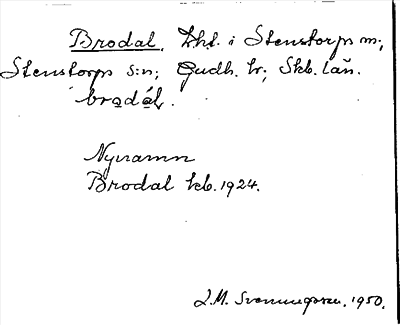 Brodal, lht. i Stenstorps m;
Stenstorps s:n; Gudh. hr; Skb. län.
bro̱dál.
Nyvamn
Brodal kb. 1924.
J.M. Svenningsson. 1950.